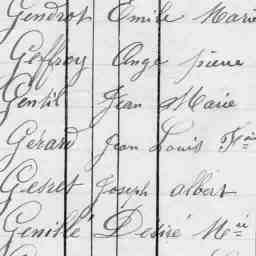 Gendrot Emile Marie
Geffroy Ange pierre
Gentil Jean Marie
Gérard Jean Louis Fois
Gesret Joseph albert
Genislé Désiré Mie